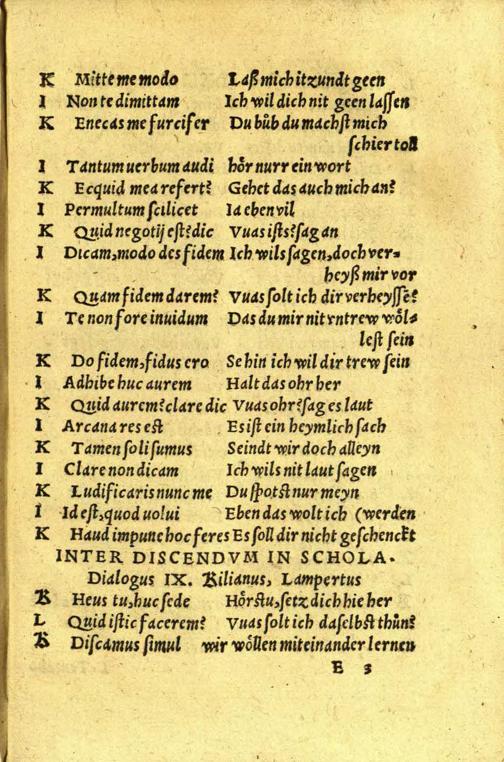 K Mitte me modo Laß mich itzundt geen
I Non te dimittam Ich wil dich nit geen lassen
K Enecas me furcifer Du bůb du machst mich
schier toll
I Tantum uerbum audi hör nurr ein wort
K Ecquid mea refert? Gehet das auch mich an?
I Permultum scilicet Ia eben vil
K Quid negotij est? dic Vuas ists? sag an
I Dicam, modo des fidem Ich wils sagen, doch ver=
heyß mir vor
K Quam fidem darem? Vuas solt ich dir verheyssē?
I Te non fore inuidum Das du mir nit vntrew wöl=
lest sein
K Do fidem, fidus ero Se hin ich wil dir trew sein
I Adhibe huc aurem Halt das ohr her
K Quid aurem? clare dic Vuas ohr? sag es laut
I Arcana res est Es ist ein heymlich sach
K Tamen soli sumus Seindt wir doch alleyn
I Clare non dicam Ich wils nit laut sagen
K Ludificaris nunc me Du spotst nur meyn
I Id est, quod uolui Eben das wolt ich (werden
K Haud impune hoc feres Es soll dir nicht geschenckt
INTER DISCENDVM IN SCHOLA.
Dialogus IX. Kilianus, Lampertus
K Heus tu, huc sede Hörstu, setz dich hie her
L Quid istic facerem? Vuas solt ich daselbst thůn?
K Discamus simul wir wöllen miteinander lernen
E 3